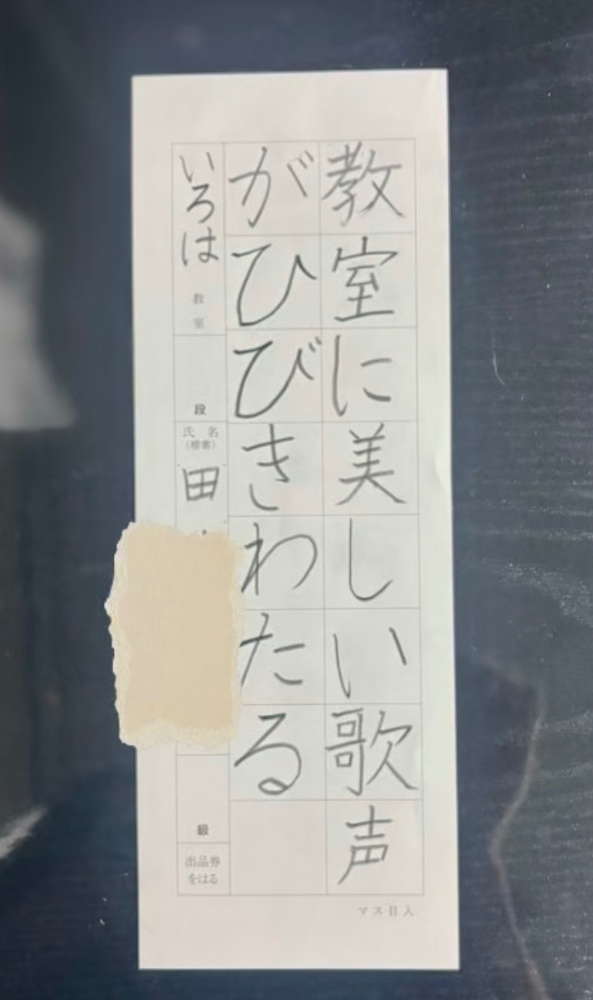 教室に美しい歌声
がひびきわたる
いろは教室
段
氏名
(楷書)
田
級
出品券
をはる
マス目入